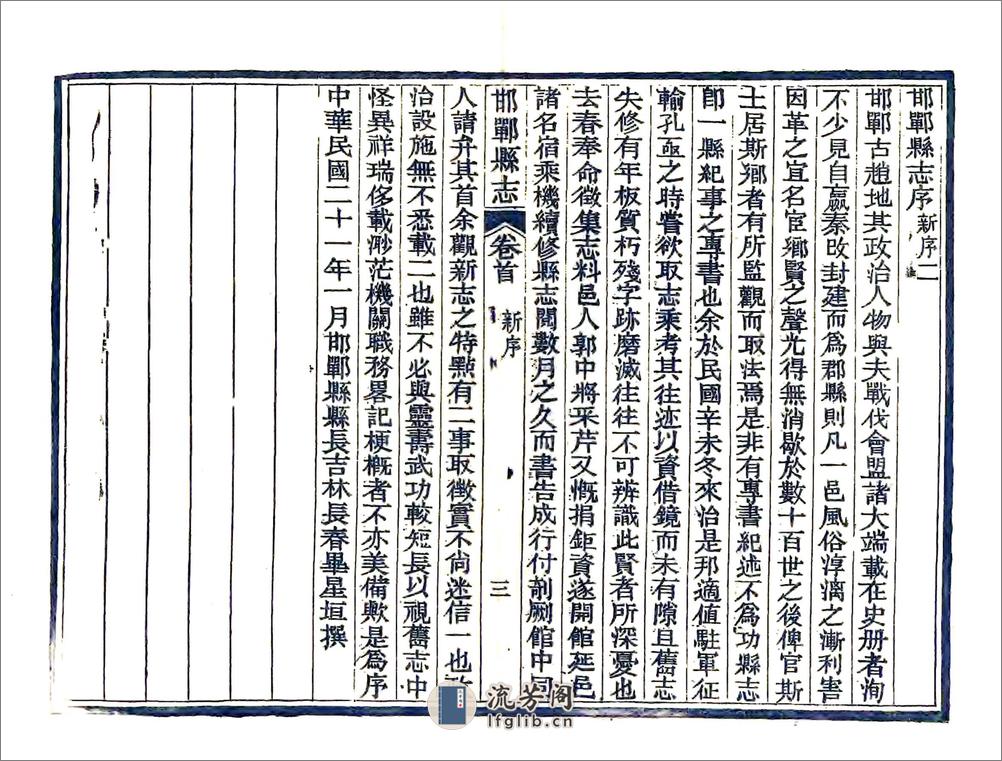 邯鄲縣志序 新序二
邯鄲古趙地其政治人物與夫戰伐會盟諸大端載在史册者洵
不少見自嬴秦改封建而爲郡縣則凡一邑風俗淳漓之漸利害
因革之宜名宦鄉賢之聲光得無消歇於數十百世之後俾官斯
土居斯鄉者有所監觀而取法焉是非有專書紀述不爲功縣志
卽一縣紀事之專書也余於民國辛未冬來治是邦適値駐軍征
輸孔亟之時嘗欲取志乘考其往迹以資借鏡而未有隙且舊志
失修有年板質朽殘字跡磨滅往往不可辨識此賢者所深憂也
去春奉命徵集志料邑人郭中將采芹又慨捐鉅資遂開館延邑
諸名宿乘機續修縣志閱數月之久而書告成行付剞劂館中同
邯鄲縣志 卷首 新序 三
人請弁其首余觀新志之特點有二事取徵實不尚迷信一也政
治設施無不悉載二也雖不必與靈壽武功較短長以視舊志中
怪異祥瑞侈載渺茫機關職務畧記梗概者不亦美備歟是爲序
中華民國二十一年一月邯鄲縣縣長吉林長春畢星垣撰
流芳阁
lfglib.cn